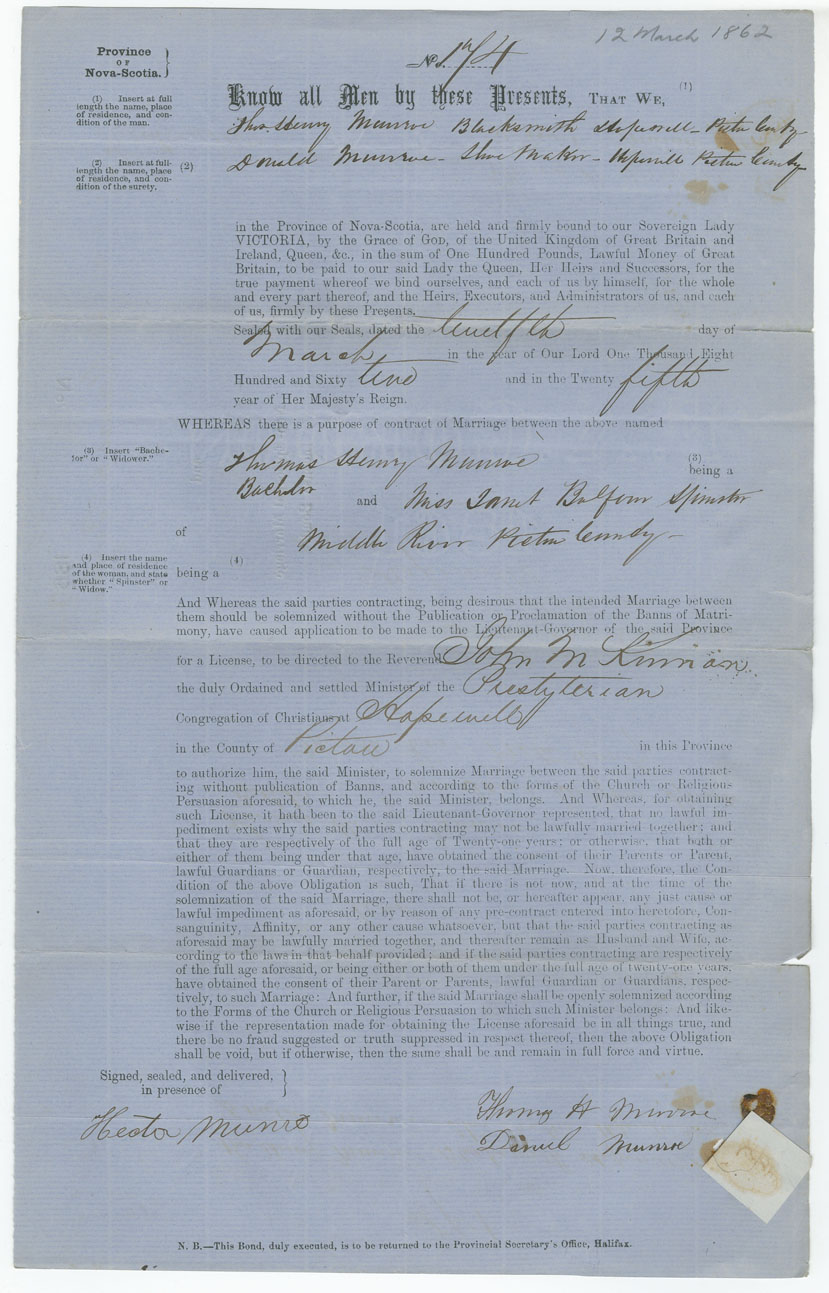 12 March 1862
Province
OF
Nova-Scotia.
No. 174
Know all Men by these Presents, THAT WE, (1)
(1) Insert at full
length the name, place
of residence, and con-
dition of the man.
Thos Henry Munroe Blacksmith Hopewell - Pictou County
(2) Insert at full-
length the name, place
of residence, and con-
dition of the surety.
(2)
Donald Munroe - Shoe Maker - Hopewell Pictou County
in the Province of Nova-Scotia, are held and firmly bound to our Sovereign Lady
VICTORIA, by the Grace of GOD, of the United Kingdom of Great Britain and
Ireland, Queen, &c., in the sum of One Hundred Pounds, Lawful Money of Great
Britain, to be paid to our said Lady the Queen, Her Heirs and Successors, for the
true payment whereof we bind ourselves, and each of us by himself, for the whole
and every part thereof, and the Heirs, Executors, and Administrators of us, and each
of us, firmly by these Presents.
Sealed with our Seals, dated the twelfth day of
March in the year of Our Lord One Thousand Eight
Hundred and Sixty two and in the Twenty fifth
year of Her Majesty's Reign.
WHEREAS there is a purpose of contract of Marriage between the above named
(3) Insert "Bache-
lor" or "Widower."
Thomas Henry Munroe (3) being a
Bachelor and Miss Janet Balfour Spinster
of Middle River Pictou County -
(4) Insert the name
and place of residence
of the woman, and state
whether "Spinster" or
"Widow."
(4)
being a
And Whereas the said parties contracting, being desirous that the intended Marriage between
them should be solemnized without the Publication or Proclamation of the Banns of Matri-
mony, have caused application to be made to the Lieutenant-Governor of the said Province
for a License, to be directed to the Reverend John McKinnon
the duly Ordained and settled Minister of the Presbyterian
Congregation of Christians at Hopewell
in the County of Pictou in this Province
to authorize him, the said Minister, to solemnize Marriage between the said parties contract-
ing without publication of Banns, and according to the forms of the Church or Religious
Persuasion aforesaid, to which he, the said Minister, belongs. And Whereas, for obtaining
such License, it hath been to the said Lieutenant-Governor represented, that no lawful im-
pediment exists why the said parties contracting may not be lawfully married together; and
that they are respectively of the full age of Twenty-one years; or otherwise, that both or
either of them being under that age, have obtained the consent of their Parents or Parent,
lawful Guardians or Guardian, respectively, to the said Marriage. Now, therefore, the Con-
dition of the above Obligation is such, That if there is not now, and at the time of the
solemnization of the said Marriage, there shall not be, or hereafter appear, any just cause or
lawful impediment as aforesaid, or by reason of any pre-contract entered into heretofore, Con-
sanguinity, Affinity, or any other cause whatsoever, but that the said parties contracting as
aforesaid may be lawfully married together, and thereafter remain as Husband and Wife, ac-
cording to the laws in that behalf provided; and if the said parties contracting are respectively
of the full age aforesaid, or being either or both of them under the full age of twenty-one years,
have obtained the consent of their Parent or Parents, lawful Guardian or Guardians, respec-
tively, to such Marriage: And further, if the said Marriage shall be openly solemnized according
to the Forms of the Church or Religious Persuasion to which such Minister belongs: And like-
wise if the representation made for obtaining the License aforesaid be in all things true, and
there be no fraud suggested or truth suppressed in respect thereof, then the above Obligation
shall be void, but if otherwise, then the same shall be and remain in full force and virtue.
Signed, sealed, and delivered,
in presence of
Hector Munro
Thomas H Munroe
Daniel Munroe
N. B.—This Bond, duly executed, is to be returned to the Provincial Secretary's Office, Halifax.